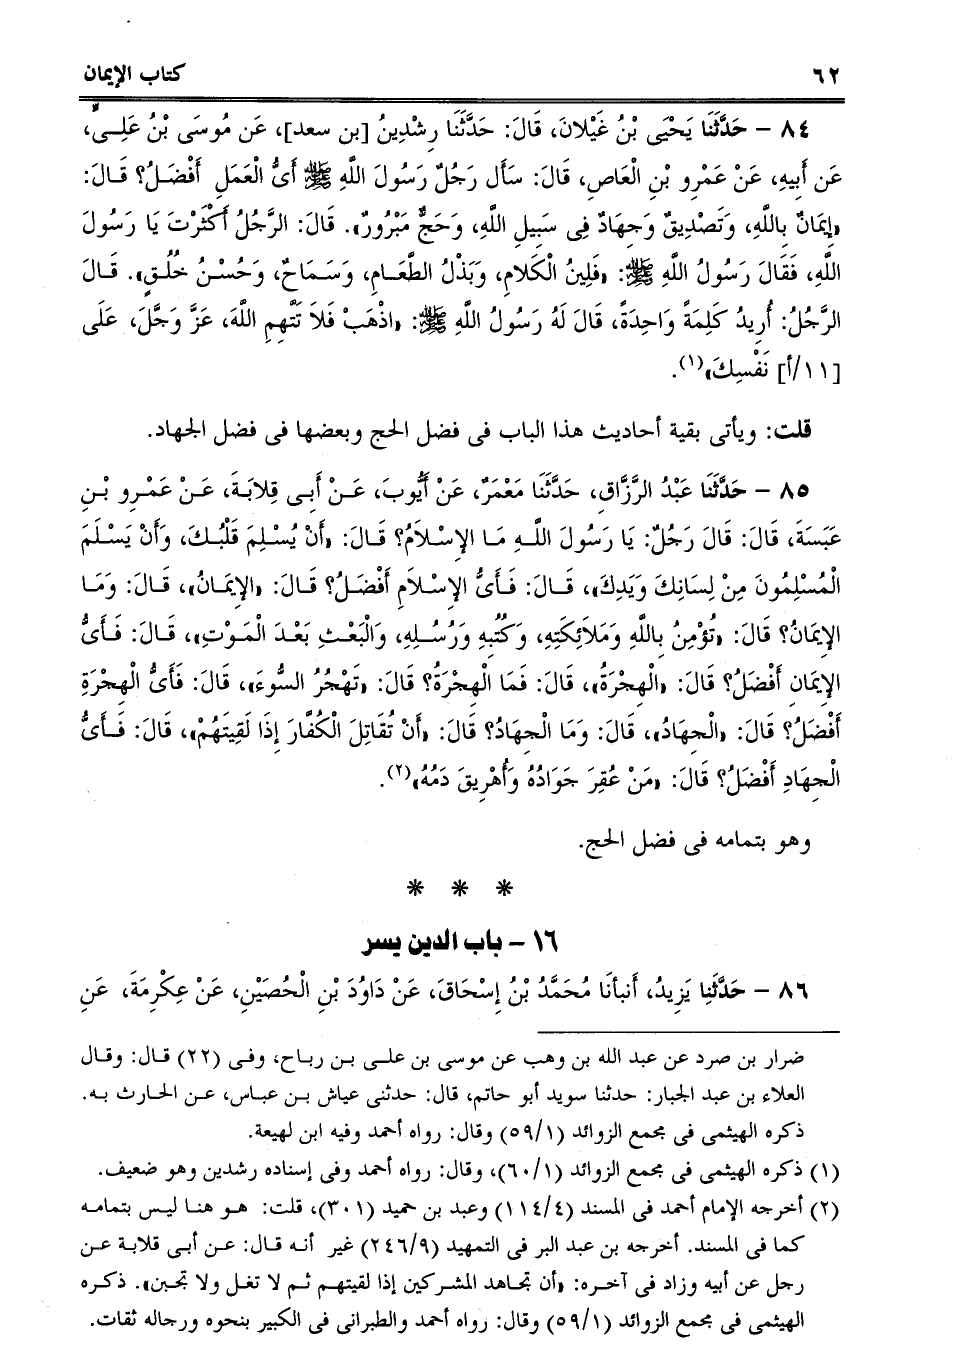 ٦٢ كتاب الإيمان
٨٤ – حَدَّثَنَا يَحْيَى بْنُ غَيْلانَ، قَالَ: حَدَّثَنَا رِشْدِينُ [بن سعد]، عَن مُوسَى بْنُ عَلِى،
عَن أَبِيهِ، عَنْ عَمْرِو بْنِ الْعَاصِ، قَالَ: سَأَل رَجُلٌ رَسُولَ اللَّهِ ﷺ أَىُّ الْعَمَلِ أَفْضَلُ؟ قَالَ:
«إِيمَانٌ بِاللَّهِ، وَتَصْدِيقٌ وَجِهَادٌ فِى سَبِيلِ اللَّهِ، وَحَجٌّ مَبْرُورٌ». قَالَ: الرَّجُلُ أَكْثَرْتَ يَا رَسُولَ
اللَّهِ، فَقَالَ رَسُولُ اللَّهِ ﷺ: «فَلِينُ الْكَلامِ، وَبَذْلُ الطَّعَامِ، وَسَمَاحٌ، وَحُسْنُ خُلُقٍ». قَالَ
الرَّجُلُ: أُرِيدُ كَلِمَةً وَاحِدَةً، قَالَ لَهُ رَسُولُ اللَّهِ ﷺ: «اذْهَبْ فَلاَ تَتَّهِمِ اللَّهَ، عَزَّ وَجَلَّ، عَلَى
[١١/أ] نَفْسِكَ»(١).
قلت: ويأتى بقية أحاديث هذا الباب فى فضل الحج وبعضها فى فضل الجهاد.
٨٥ – حَدَّثَنَا عَبْدُ الرَّزَّاقِ، حَدَّثَنَا مَعْمَرٌ، عَنْ أَيُّوبَ، عَنْ أَبِى قِلابَةَ، عَنْ عَمْرِو بْنِ
عَبَسَةَ، قَالَ: قَالَ رَجُلٌ: يَا رَسُولَ اللَّهِ مَا الإِسْلاَمُ؟ قَالَ: «أَنْ يُسْلِمَ قَلْبُكَ، وَأَنْ يَسْلَمَ
الْمُسْلِمُونَ مِنْ لِسَانِكَ وَيَدِكَ»، قَالَ: فَأَىُّ الإِسْلاَمِ أَفْضَلُ؟ قَالَ: «الإِيمَانُ»، قَالَ: وَمَا
الإِيمَانُ؟ قَالَ: «تُؤْمِنُ بِاللَّهِ وَمَلاَئِكَتِهِ، وَكُتُبِهِ وَرُسُلِهِ، وَالْبَعْثِ بَعْدَ الْمَوْتِ»، قَالَ: فَأَىُّ
الإِيمَانِ أَفْضَلُ؟ قَالَ: «الْهِجْرَةُ»، قَالَ: فَمَا الْهِجْرَةُ؟ قَالَ: «تَهْجُرُ السُّوءَ»، قَالَ: فَأَىُّ الْهِجْرَةِ
أَفْضَلُ؟ قَالَ: «الْجِهَادُ»، قَالَ: وَمَا الْجِهَادُ؟ قَالَ: «أَنْ تُقَاتِلَ الْكُفَّارَ إِذَا لَقِيتَهُمْ»، قَالَ: فَأَىُّ
الْجِهَادِ أَفْضَلُ؟ قَالَ: «مَنْ عُقِرَ جَوَادُهُ وَأُهْرِيقَ دَمُهُ»(٢).
وهو بتمامه فى فضل الحج.
* * *
١٦ – باب الدين يسر
٨٦ – حَدَّثَنِا يَزِيدُ، أَنبأنَا مُحَمَّدُ بْنُ إِسْحَاقَ، عَنْ دَاوُدَ بْنِ الْحُصَيْنِ، عَنْ عِكْرِمَةَ، عَنِ
ضرار بن صرد عن عبد الله بن وهب عن موسى بن على بن رباح، وفى (٢٢) قال: وقال
العلاء بن عبد الجبار: حدثنا سويد أبو حاتم، قال: حدثنى عياش بن عباس، عن الحارث به.
ذكره الهيثمى فى مجمع الزوائد (٥٩/١) وقال: رواه أحمد وفيه ابن لهيعة.
(١) ذكره الهيثمى فى مجمع الزوائد (٦٠/١)، وقال: رواه أحمد وفى إسناده رشدين وهو ضعيف.
(٢) أخرجه الإمام أحمد فى المسند (١١٤/٤) وعبد بن حميد (٣٠١)، قلت: هو هنا ليس بتمامه
كما فى المسند. أخرجه بن عبد البر فى التمهيد (٢٤٦/٩) غير أنه قال: عن أبى قلابة عن
رجل عن أبيه وزاد فى آخره: «أن تجاهد المشركين إذا لقيتهم ثم لا تغل ولا تجبن». ذكره
الهيثمى فى مجمع الزوائد (٥٩/١) وقال: رواه أحمد والطبرانى فى الكبير بنحوه ورجاله ثقات.